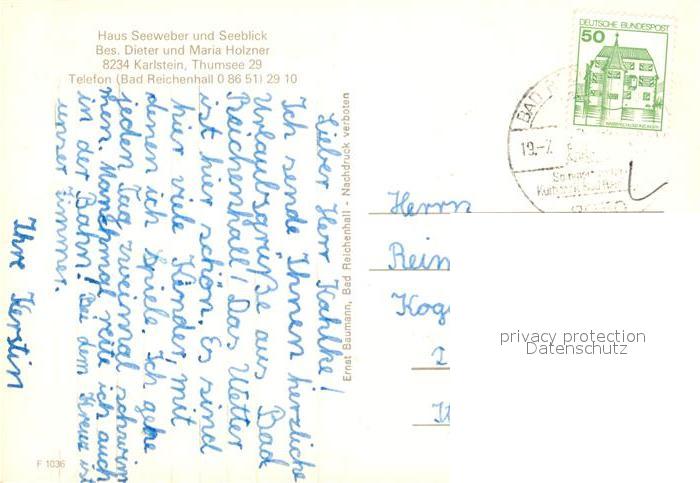 Haus Seeweber und Seeblick
Bes. Dieter und Maria Holzner
8234 Karlstein, Thumsee 29
Telefon (Bad Reichenhall 0 86 51) 29 10
Lieber Herr Kahlke!
Ich sende Ihnen herzliche
Urlaubsgrüße aus Bad
Reichenhall! Das Wetter
ist hier schön. Es sind
hier viele Kinder, mit
denen ich spiele. Ich gehe
jeden Tag zweimal schwim
men. Manchmal reite ich auch
in der Bahn! Bei dem Kreuz ist
unser Zimmer.
Ihre Kerstin
F 1036
Ernst Baumann, Bad Reichenhall - Nachdruck verboten
DEUTSCHE BUNDESPOST
50
BAD
19.-7.
Herrn
Rein
Kog
privacy protection
Datenschutz